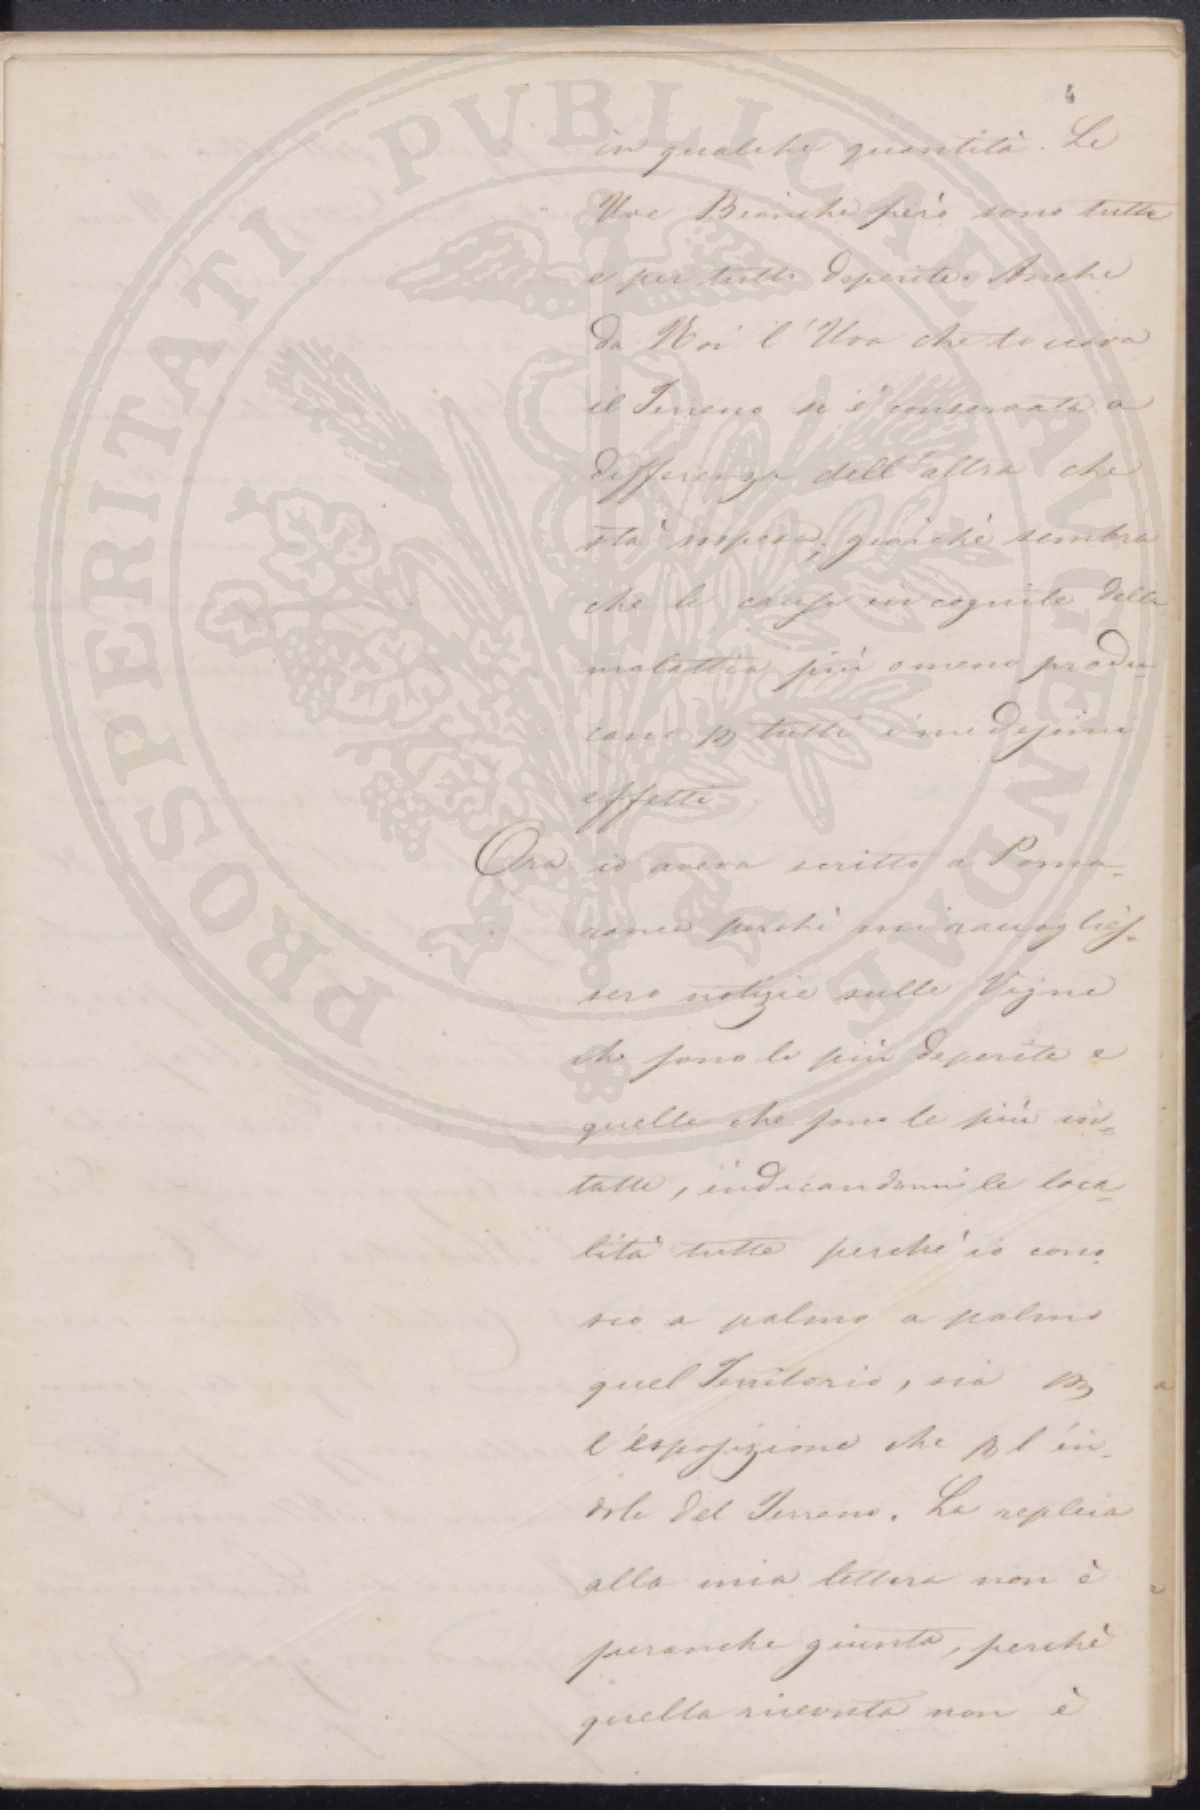 4
in qualche quantità. Le
Uve Bianche però sono tutte
e per tutto deperite. Anche
da Noi l'Uva che toccava
il Terreno si è conservata a
differenza dell'altra che
stà sospesa; giacchè sembra
che le cause incognite della
malattia più omeno produ-
cano p tutti i medesimi
effetti.
Ora io aveva scritto a Poma-
rance perchè mi raccoglies-
sero notizie sulle Vigne
che sono le più deperite e
quelle che sono le più in-
tatte, indicandomi le loca-
lità tutte perchè io cono-
sco a palmo a palmo
quel Territorio, sia p
l'esposizione che p l'in-
dole del Terreno. La replica
alla mia lettera non è
peranche giunta, perchè
quella ricevuta non è
PROSPERITATI PVBLICAE AVGENDAE